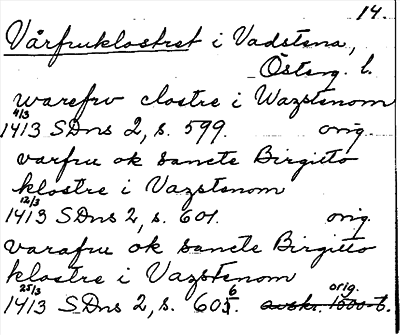 14.
Vårfruklostret i Vadstena,
Österg. l.
warefrv clostre i Wazstenom
4/3
1413 SDns 2, s. 599. orig.
varfru ok sancte Birgitto
klostre i Vazstenom
12/3
1413 SDns 2, s. 601. orig.
varafru ok sancte Birgitto
klostre i Vazstenom
25/3 6 orig.
1413 SDns 2, s. 605. avskr. 1600-t.